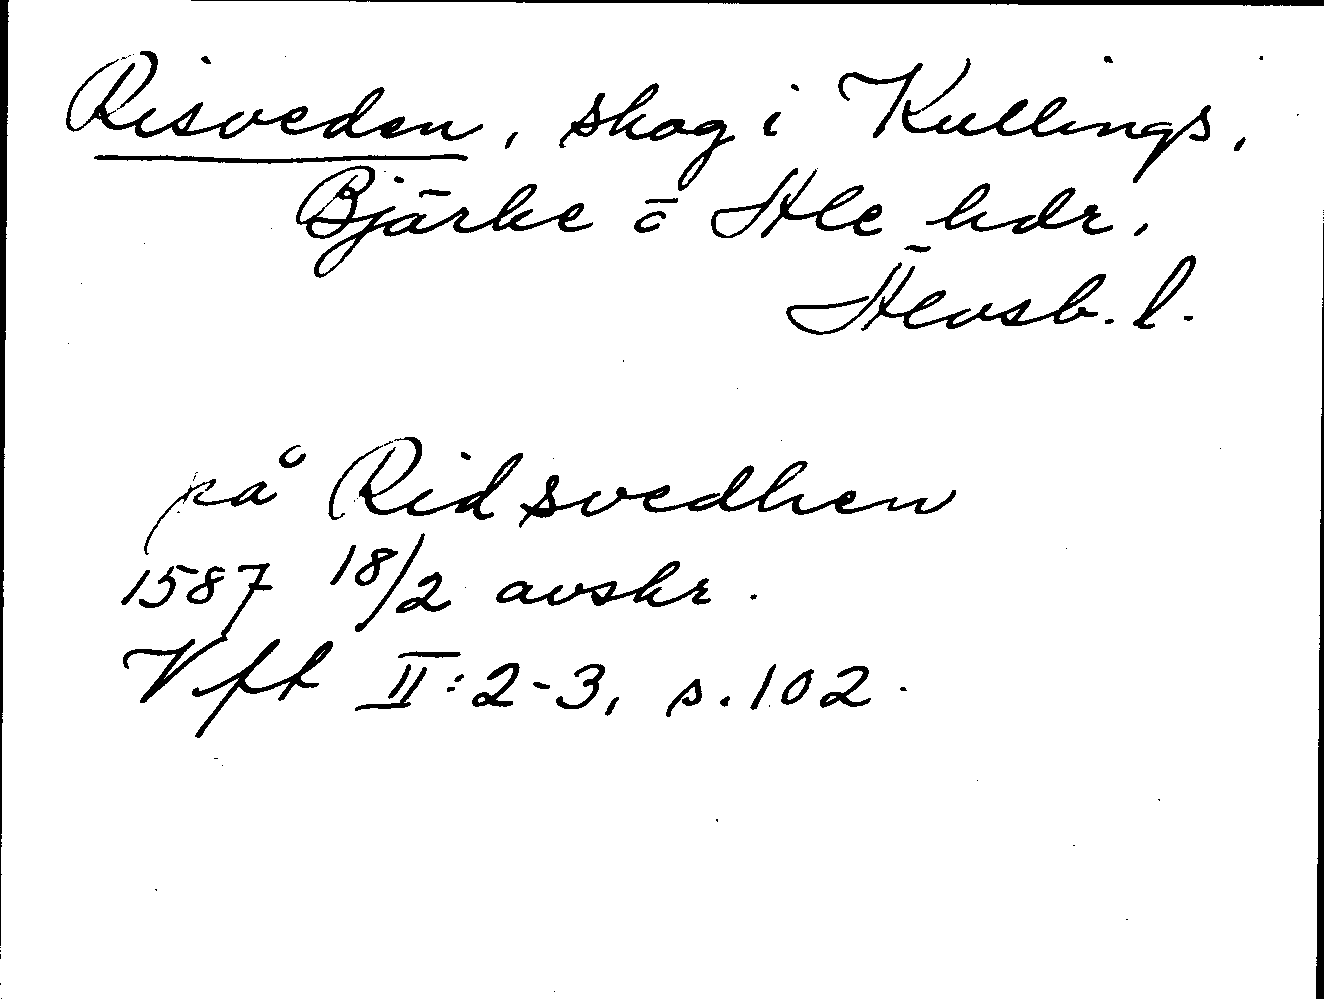 Risveden, skog i Kullings,
Bjärke o Ale hdr.
Älvsb. l.
på Ridsvedhen
1587 18/2 avskr.
Vfft II:2-3, s. 102.